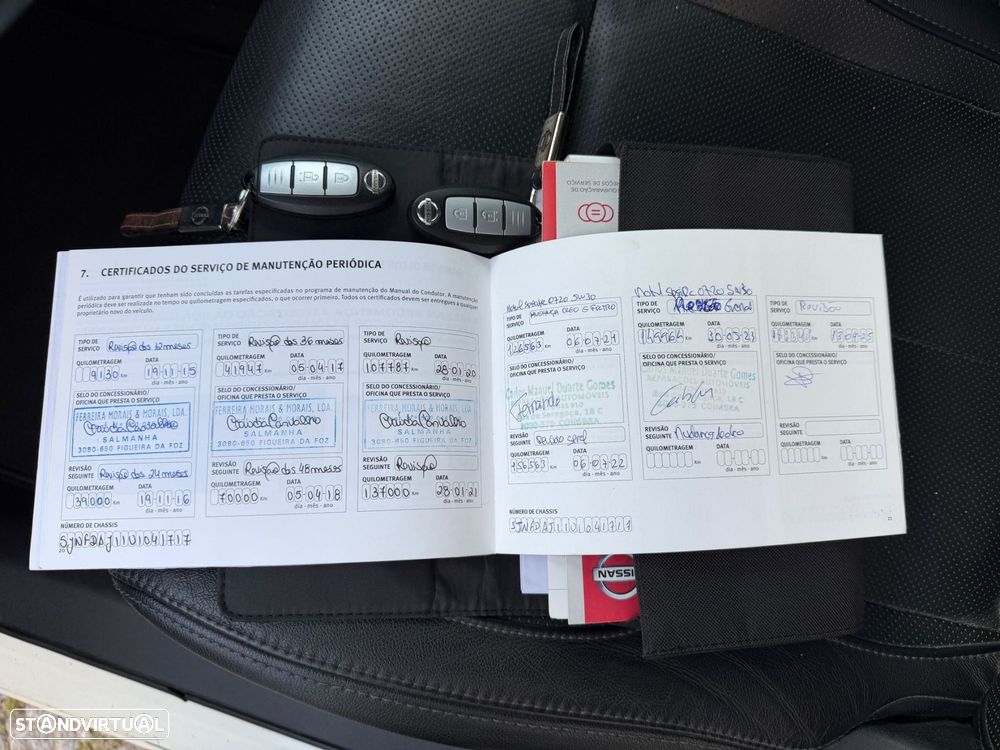 7. CERTIFICADOS DO SERVIÇO DE MANUTENÇÃO PERIÓDICA
É utilizado para garantir que tenham sido concluídas as tarefas especificadas no programa de manutenção do Manual do Condutor. A manutenção
periódica deve ser realizada no tempo ou quilometragem especificados, o que ocorrer primeiro. Todos os certificados devem ser entregues a qualquer
proprietário novo do veículo.
TIPO DE SERVIÇO Revisão dos 12 meses
QUILOMETRAGEM DATA
9130 Km 19-11-15
dia - mês - ano
SELO DO CONCESSIONÁRIO/
OFICINA QUE PRESTA O SERVIÇO
FERREIRA MORAIS & MORAIS, LDA.
SALMANHA
3080-650 FIGUEIRA DA FOZ
REVISÃO SEGUINTE Revisão dos 24 meses
QUILOMETRAGEM DATA
39000 Km 19-11-16
dia - mês - ano
TIPO DE SERVIÇO Revisão dos 36 meses
QUILOMETRAGEM DATA
41947 Km 05-04-17
dia - mês - ano
SELO DO CONCESSIONÁRIO/
OFICINA QUE PRESTA O SERVIÇO
FERREIRA MORAIS & MORAIS, LDA.
SALMANHA
3080-650 FIGUEIRA DA FOZ
REVISÃO SEGUINTE Revisão dos 48 meses
QUILOMETRAGEM DATA
70000 Km 05-04-18
dia - mês - ano
TIPO DE SERVIÇO Revisão
QUILOMETRAGEM DATA
107787 Km 28-01-20
dia - mês - ano
SELO DO CONCESSIONÁRIO/
OFICINA QUE PRESTA O SERVIÇO
FERREIRA MORAIS & MORAIS, LDA.
SALMANHA
3080-650 FIGUEIRA DA FOZ
REVISÃO SEGUINTE Revisão
QUILOMETRAGEM DATA
137000 Km 28-01-21
dia - mês - ano
NÚMERO DE CHASSIS
SJNFDAJ11U1041717
20
0720 5W30
TIPO DE SERVIÇO MUDANÇA OLEO E FILTRO
QUILOMETRAGEM DATA
126563 Km 06-07-21
dia - mês - ano
SELO DO CONCESSIONÁRIO/
OFICINA QUE PRESTA O SERVIÇO
Carlos Manuel Duarte Gomes
REPARAÇÕES AUTOMÓVEIS
Fernando
REVISÃO SEGUINTE
QUILOMETRAGEM DATA
156563 Km 06-07-22
dia - mês - ano
NÚMERO DE CHASSIS
SJNFDAJ11U1041717
0720 5W30
TIPO DE SERVIÇO
QUILOMETRAGEM DATA
Km
dia - mês - ano
SELO DO CONCESSIONÁRIO/
OFICINA QUE PRESTA O SERVIÇO
Carlos Manuel Duarte Gomes
REPARAÇÕES AUTOMÓVEIS
COIMBRA
REVISÃO SEGUINTE
QUILOMETRAGEM DATA
Km
dia - mês - ano
TIPO DE SERVIÇO Revisão
QUILOMETRAGEM DATA
Km
dia - mês - ano
SELO DO CONCESSIONÁRIO/
OFICINA QUE PRESTA O SERVIÇO
REVISÃO SEGUINTE
QUILOMETRAGEM DATA
Km
dia - mês - ano
21
DE SERVIÇO
NISSAN
STANDVIRTUAL